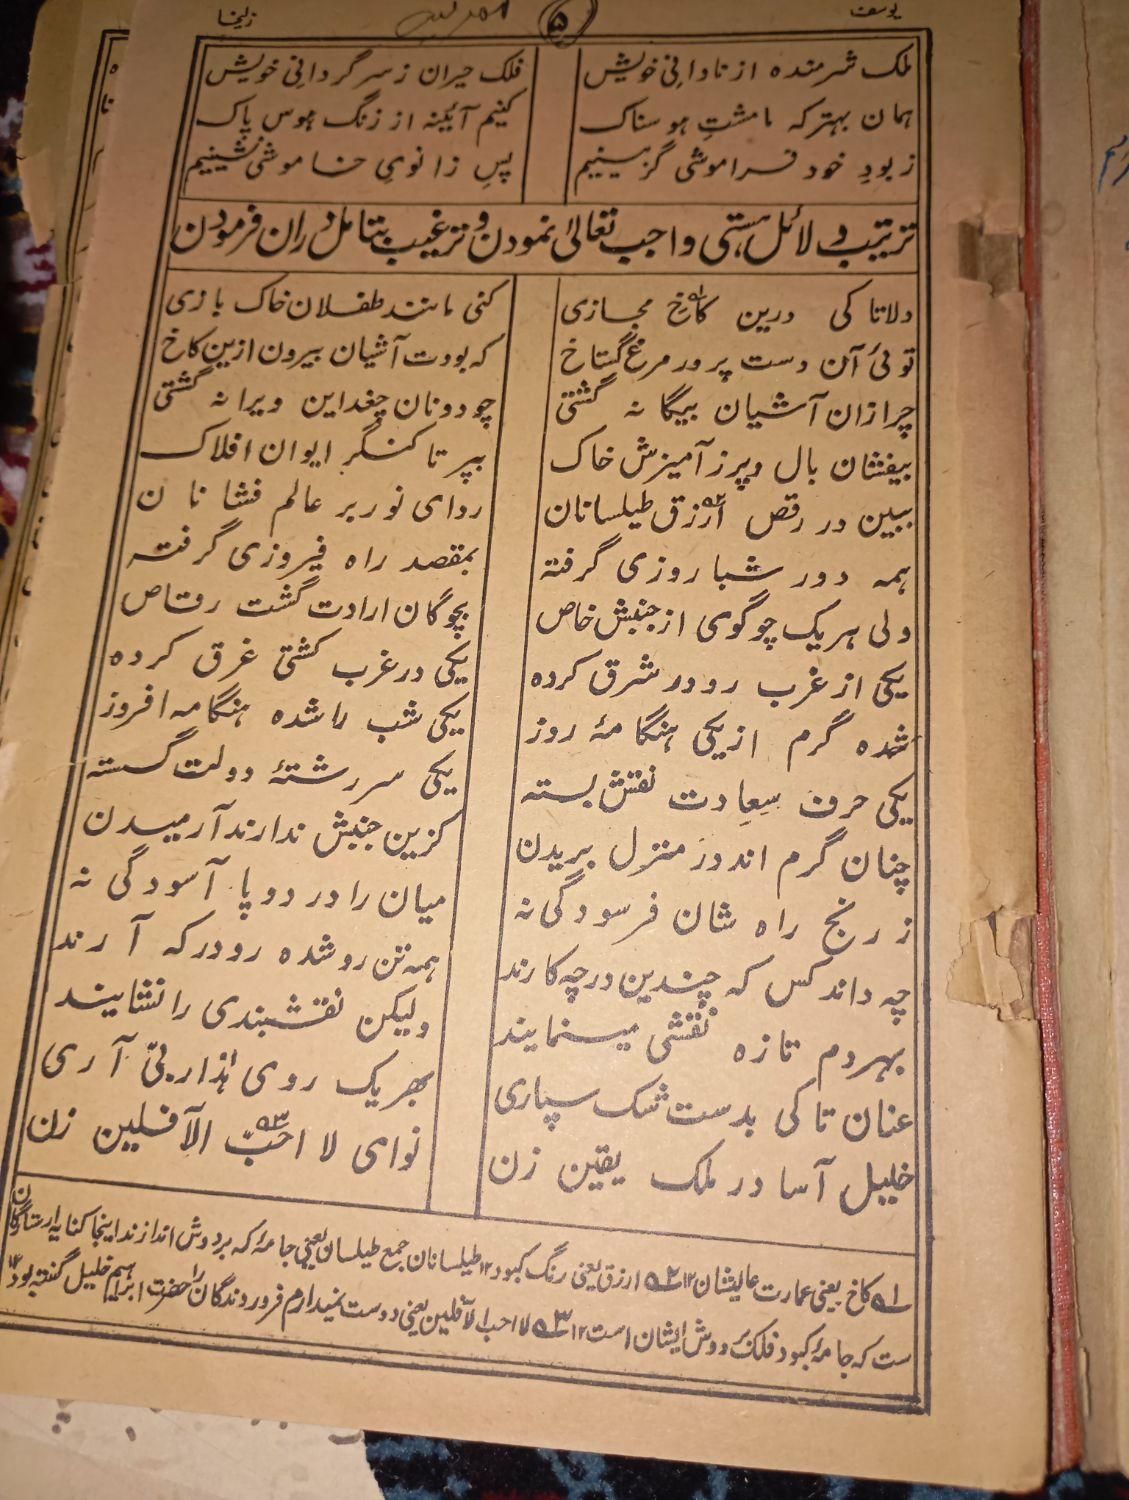 یوسف ۵ زلیخا
ملک شرمنده از نادانیِ خویش فلک حیران ز سر گردانیِ خویش
همان بهتر که ما مشتِ هوسناک کنیم آئینه از زنگ هوس پاک
ز بودِ خود فراموشی گزینیم پسِ زانویِ خاموشی نشینیم
ترتیب دلائل هستی واجب تعالیٰ نمودن و ترغیب بتامل دران فرمودن
دلا تا کی درین کاخِ۱ مجازی کنی مانند طفلان خاک بازی
توئی آن دست پرور مرغ گستاخ که بودت آشیان بیرون ازین کاخ
چرا زان آشیان بیگانه گشتی چو دونان چغد این ویرانه گشتی
بیفشان بال و پر ز آمیزش خاک بپر تا کنگر ایوان افلاک
ببین در رقص ارزق۲ طیلسانان ردای نور بر عالم فشانان
همه دور شباروزی گرفته بمقصد راه فیروزی گرفته
ولی هریک چو گوی از جنبش خاص بچوگان ارادت گشت رقاص
یکی از غرب رو در شرق کرده یکی در غرب کشتی غرق کرده
شده گرم از یکی هنگامۀ روز یکی شب را شده هنگامه افروز
یکی حرف سِعادت نقش بسته یکی سررشتۀ دولت گسسته
چنان گرم اند در منزل بریدن کزین جنبش ندارند آرمیدن
ز رنج راه شان فرسودگی نه میان را در دو پا آسودگی نه
چه داند کس که چندین درچه کارند همه تن رو شده رو در که آرند
بهر دم تازه نقشی مینمایند ولیکن نقشبندی را نشایند
عنان تا کی بدست شک سپاری بهر یک روی هٰذا ربی آری
خلیل آسا در ملک یقین زن نوای لا احبّ۳ الآفلین زن
۱ کاخ یعنی عمارت عالیشان۱۲ ۲ ارزق یعنی رنگ کبود۱۲ طیلسانان جمع طیلسان یعنی جامۀ که بردوش اندازند اینجا کنایه از ستارگان
ست که جامۀ کبود فلک بر دوش ایشان است۱۲ ۳ لا احب الآفلین یعنی دوست نمیدارم فرو روندگان را حضرت ابراهیم خلیل گفته بود۱۲